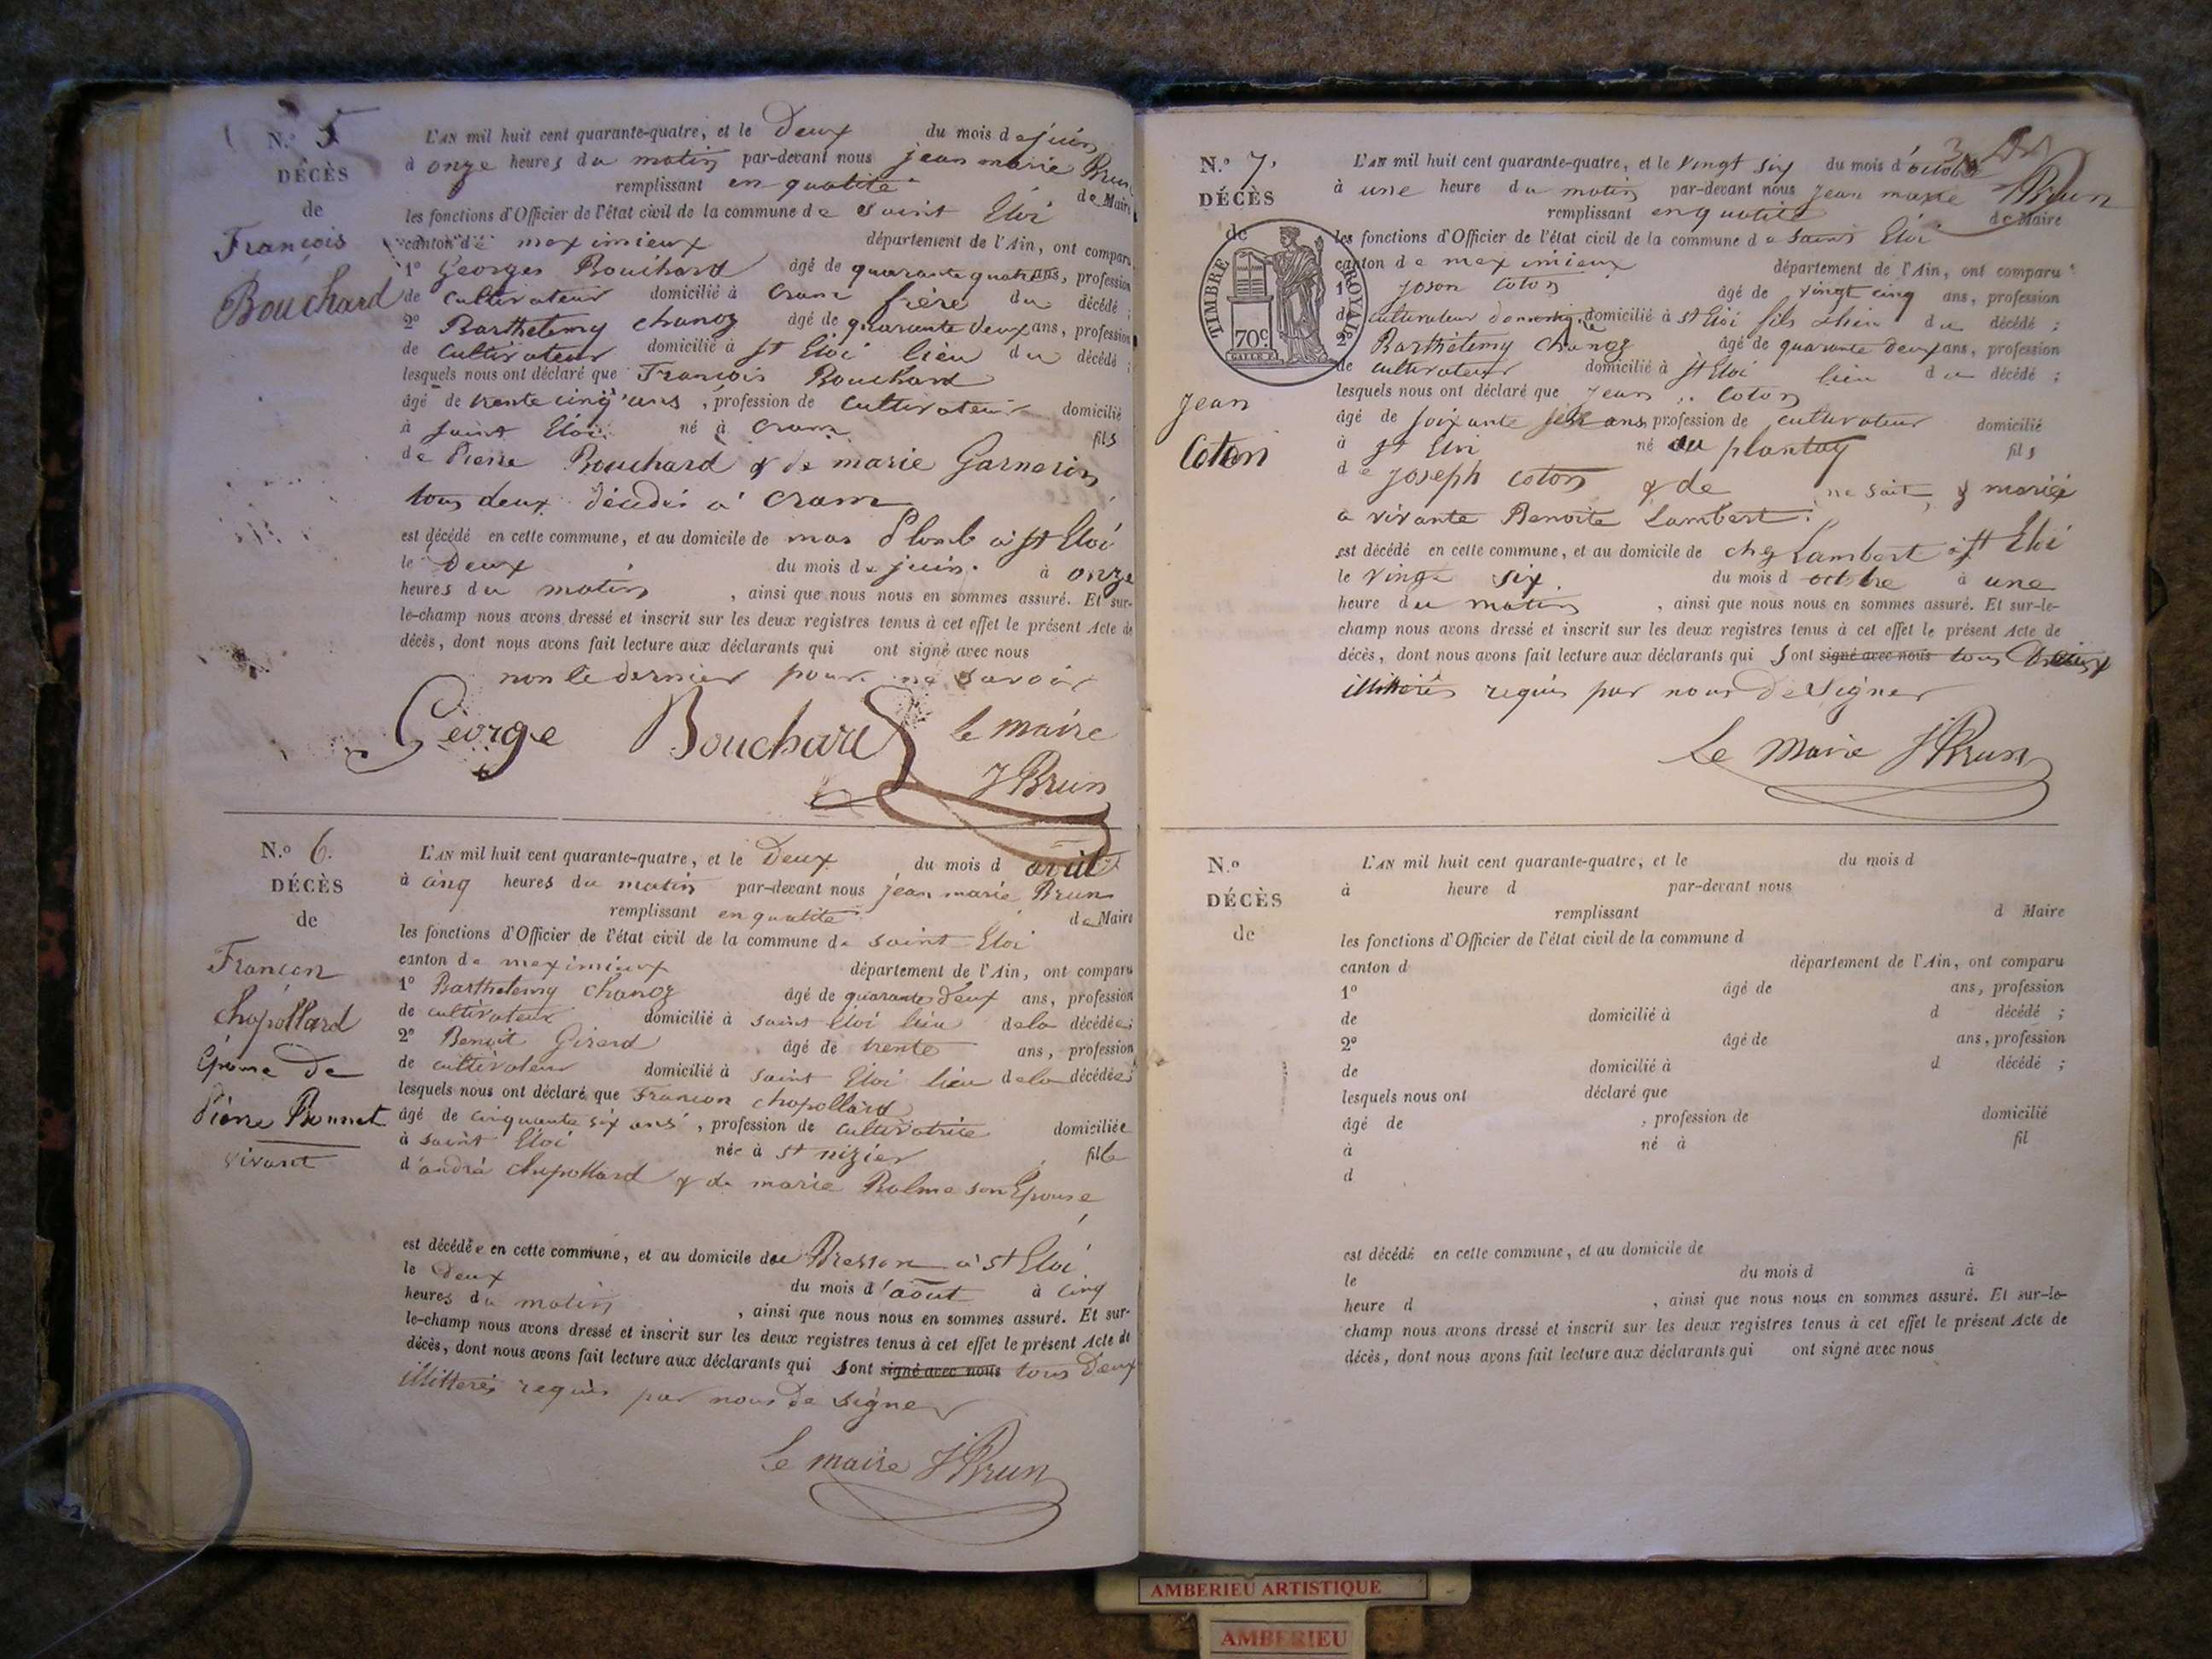 N.o 5
DÉCÈS
de
François
Bouchard
L'AN mil huit cent quarante-quatre, et le Deux du mois de juin
à onze heures du matin par-devant nous jean marie Brun
remplissant en qualité de Maire
les fonctions d'Officier de l'état civil de la commune de saint Eloi
canton de meximieux département de l'Ain, ont comparu
1o Georges Bouchard âgé de quarante quatre ans, profession
de cultivateur domicilié à Crans frère du décédé ;
2o Barthelemy chanoz âgé de quarante deux ans, profession
de cultivateur domicilié à st Eloi lieu du décédé ;
lesquels nous ont déclaré que François Bouchard
âgé de trente cinq ans, profession de cultivateur domicilié
à saint Eloi né à Crans fils
de Pierre Bouchard & de marie Garnerin
tous deux décédés à Crans
est décédé en cette commune, et au domicile de mas Plomb à st Eloi
le Deux du mois de juin. à onze
heures du matin, ainsi que nous nous en sommes assuré. Et sur-
le-champ nous avons dressé et inscrit sur les deux registres tenus à cet effet le présent Acte de
décès, dont nous avons fait lecture aux déclarants qui ont signé avec nous
non le dernier pour ne savoir
George Bouchard le maire
J Brun
N.o 6.
DÉCÈS
de
Françon
chapollard
Epouse de
Pierre Bonnet
vivant
L'AN mil huit cent quarante-quatre, et le Deux du mois d avril
à cinq heures du matin par-devant nous jean marie Brun
remplissant en qualité de Maire
les fonctions d'Officier de l'état civil de la commune de saint Eloi
canton de meximieux département de l'Ain, ont comparu
1o Barthelemy chanoz âgé de quarante deux ans, profession
de cultivateur domicilié à saint Eloi lieu de la décédée ;
2o Benoit Girard âgé de trente ans, profession
de cultivateur domicilié à saint Eloi lieu de la décédée ;
lesquels nous ont déclaré que Françon chapollard
âgé de cinquante six ans, profession de cultivatrice domiciliée
à saint Eloi née à st nizier fille
d'andré chapollard & de marie Balme son Epouse
est décédée en cette commune, et au domicile de Bresson à st Eloi
le Deux du mois d'août à cinq
heures du matin, ainsi que nous nous en sommes assuré. Et sur-
le-champ nous avons dressé et inscrit sur les deux registres tenus à cet effet le présent Acte de
décès, dont nous avons fait lecture aux déclarants qui sont signé avec nous tous Deux
illitterés requis par nous de signer
Le maire J Brun
N.o 7,
DÉCÈS
de
TIMBRE ROYAL
70c
Jean
Coton
L'AN mil huit cent quarante-quatre, et le vingt six du mois d'octobre
à une heure du matin par-devant nous jean marie Brun
remplissant en qualité de Maire
les fonctions d'Officier de l'état civil de la commune de saint Eloi
canton de meximieux département de l'Ain, ont comparu
1o Coton âgé de vingt cinq ans, profession
de cultivateur domicilié à st Eloi fils du décédé ;
2o Barthelemy chanoz âgé de quarante deux ans, profession
de cultivateur domicilié à st Eloi lieu du décédé ;
lesquels nous ont déclaré que Jean Coton
âgé de soixante ans, profession de cultivateur domicilié
à st Eloi né au plantay fils
de joseph Coton & de ne sait, & marié
a vivante Benoite Lambert.
est décédé en cette commune, et au domicile de chez Lambert à st Eloi
le vingt six. du mois d octobre à une
heure du matin, ainsi que nous nous en sommes assuré. Et sur-le-
champ nous avons dressé et inscrit sur les deux registres tenus à cet effet le présent Acte de
décès, dont nous avons fait lecture aux déclarants qui sont signé avec nous tous Deux
illitterés requis par nous de signer
Le Maire J Brun
N.o
DÉCÈS
de
L'AN mil huit cent quarante-quatre, et le du mois d
à heure d par-devant nous
remplissant d Maire
les fonctions d'Officier de l'état civil de la commune d
canton d département de l'Ain, ont comparu
1o âgé de ans, profession
de domicilié à d décédé ;
2o âgé de ans, profession
de domicilié à d décédé ;
lesquels nous ont déclaré que
âgé de , profession de domicilié
à né à fil
d
est décédé en cette commune, et au domicile de
le du mois d à
heure d , ainsi que nous nous en sommes assuré. Et sur-le-
champ nous avons dressé et inscrit sur les deux registres tenus à cet effet le présent Acte de
décès, dont nous avons fait lecture aux déclarants qui ont signé avec nous
AMBERIEU ARTISTIQUE
AMBERIEU